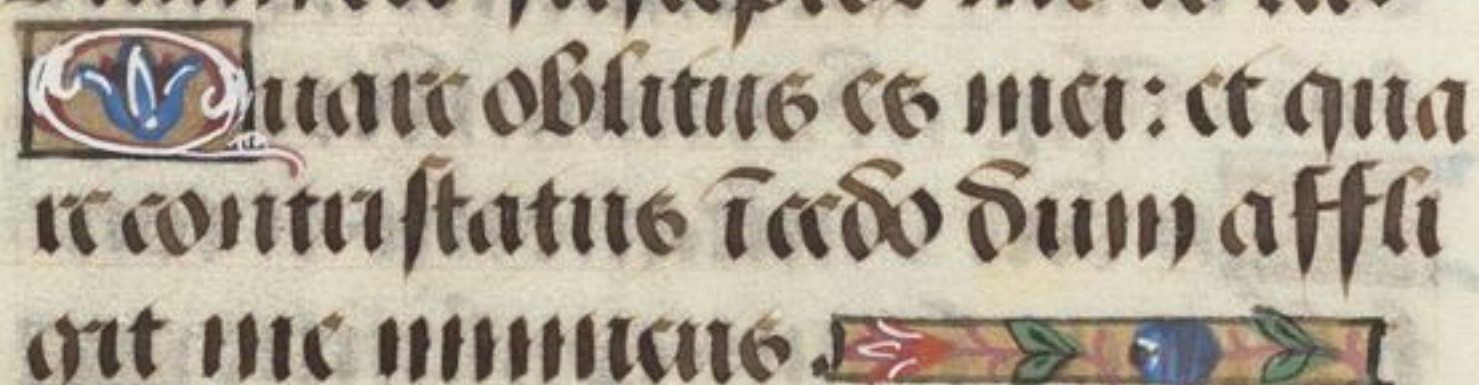 Quare oblitus es mei: et qua
re contristatus īcedo dum affli
git me inimicus.